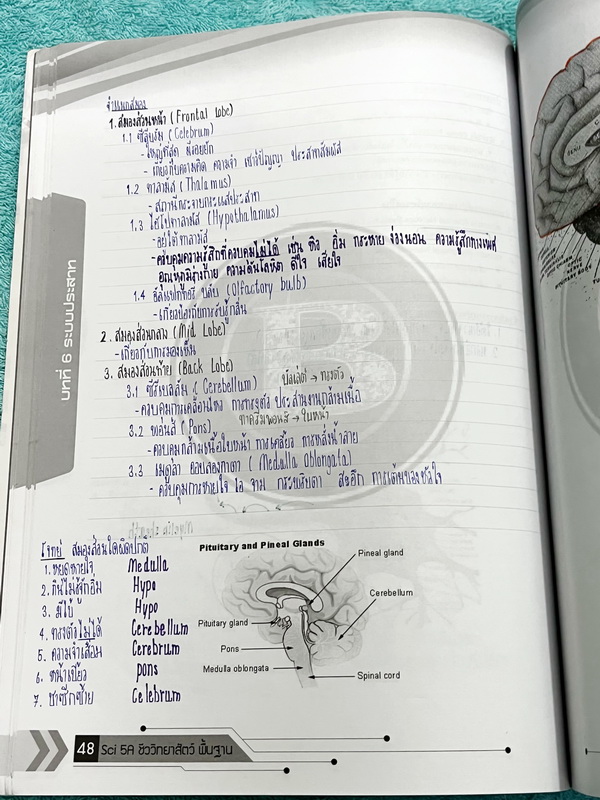 จำแนกสมอง
1. สมองส่วนหน้า (Frontal Lobe)
1.1 ซีรีบรัม (Celebrum)
- ใหญ่ที่สุด มีรอยหยัก
- เกี่ยวกับความคิด ความจำ เชาว์ปัญญา ประสาทสัมผัส
1.2 ทาลามัส (Thalamus)
- สถานีกระจายกระแสประสาท
1.3 ไฮโปทาลามัส (Hypothalamus)
- อยู่ใต้ทาลามัส
- ควบคุมความรู้สึกที่ควบคุมไม่ได้ เช่น หิว อิ่ม กระหาย ง่วงนอน ความรู้สึกทางเพศ
อุณหภูมิร่างกาย ความดันโลหิต ดีใจ เสียใจ
1.4 (Olfactory bulb)
- เกี่ยวข้องกับการรับรู้กลิ่น
2. สมองส่วนกลาง (Mid Lobe)
- เกี่ยวกับการมองเห็น
3. สมองส่วนท้าย (Back Lobe)
3.1 ซีรีเบลลัม (Cerebellum) บัลเล่ต์ → ทรงตัว
- ควบคุมการเคลื่อนไหว การทรงตัว ประสานงานกล้ามเนื้อ
3.2 พอนส์ (Pons) → ใบหน้า
- ควบคุมกล้ามเนื้อใบหน้า การเคี้ยว การหลั่งน้ำลาย
3.3 เมดุลลา ออบลองกาตา (Medulla Oblongata)
- ควบคุมการหายใจ ไอ จาม กระพริบตา สะอึก การเต้นของหัวใจ
โจทย์ สมองส่วนใดผิดปกติ
1. หยุดหายใจ Medulla
2. กินไม่รู้จักอิ่ม Hypo
3. มีไข้ Hypo
4. ทรงตัวไม่ได้ Cerebellum
5. ความจำเสื่อม Cerebrum
6. หน้าเบี้ยว pons
7. ชาซีกซ้าย Celebrum
Pituitary and Pineal Glands
Pineal gland
Cerebellum
Pituitary gland
Pons
Medulla oblongata
Spinal cord
บทที่ 6 ระบบประสาท
B
48 Sci 5A ชีววิทยาสัตว์ พื้นฐาน